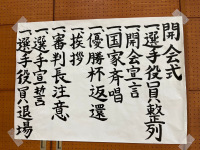 開会式
一選手役員整列
一開会宣言
一国家斉唱
一優勝杯返還
一挨拶
一審判長注意
一選手宣誓
一選手役員退場